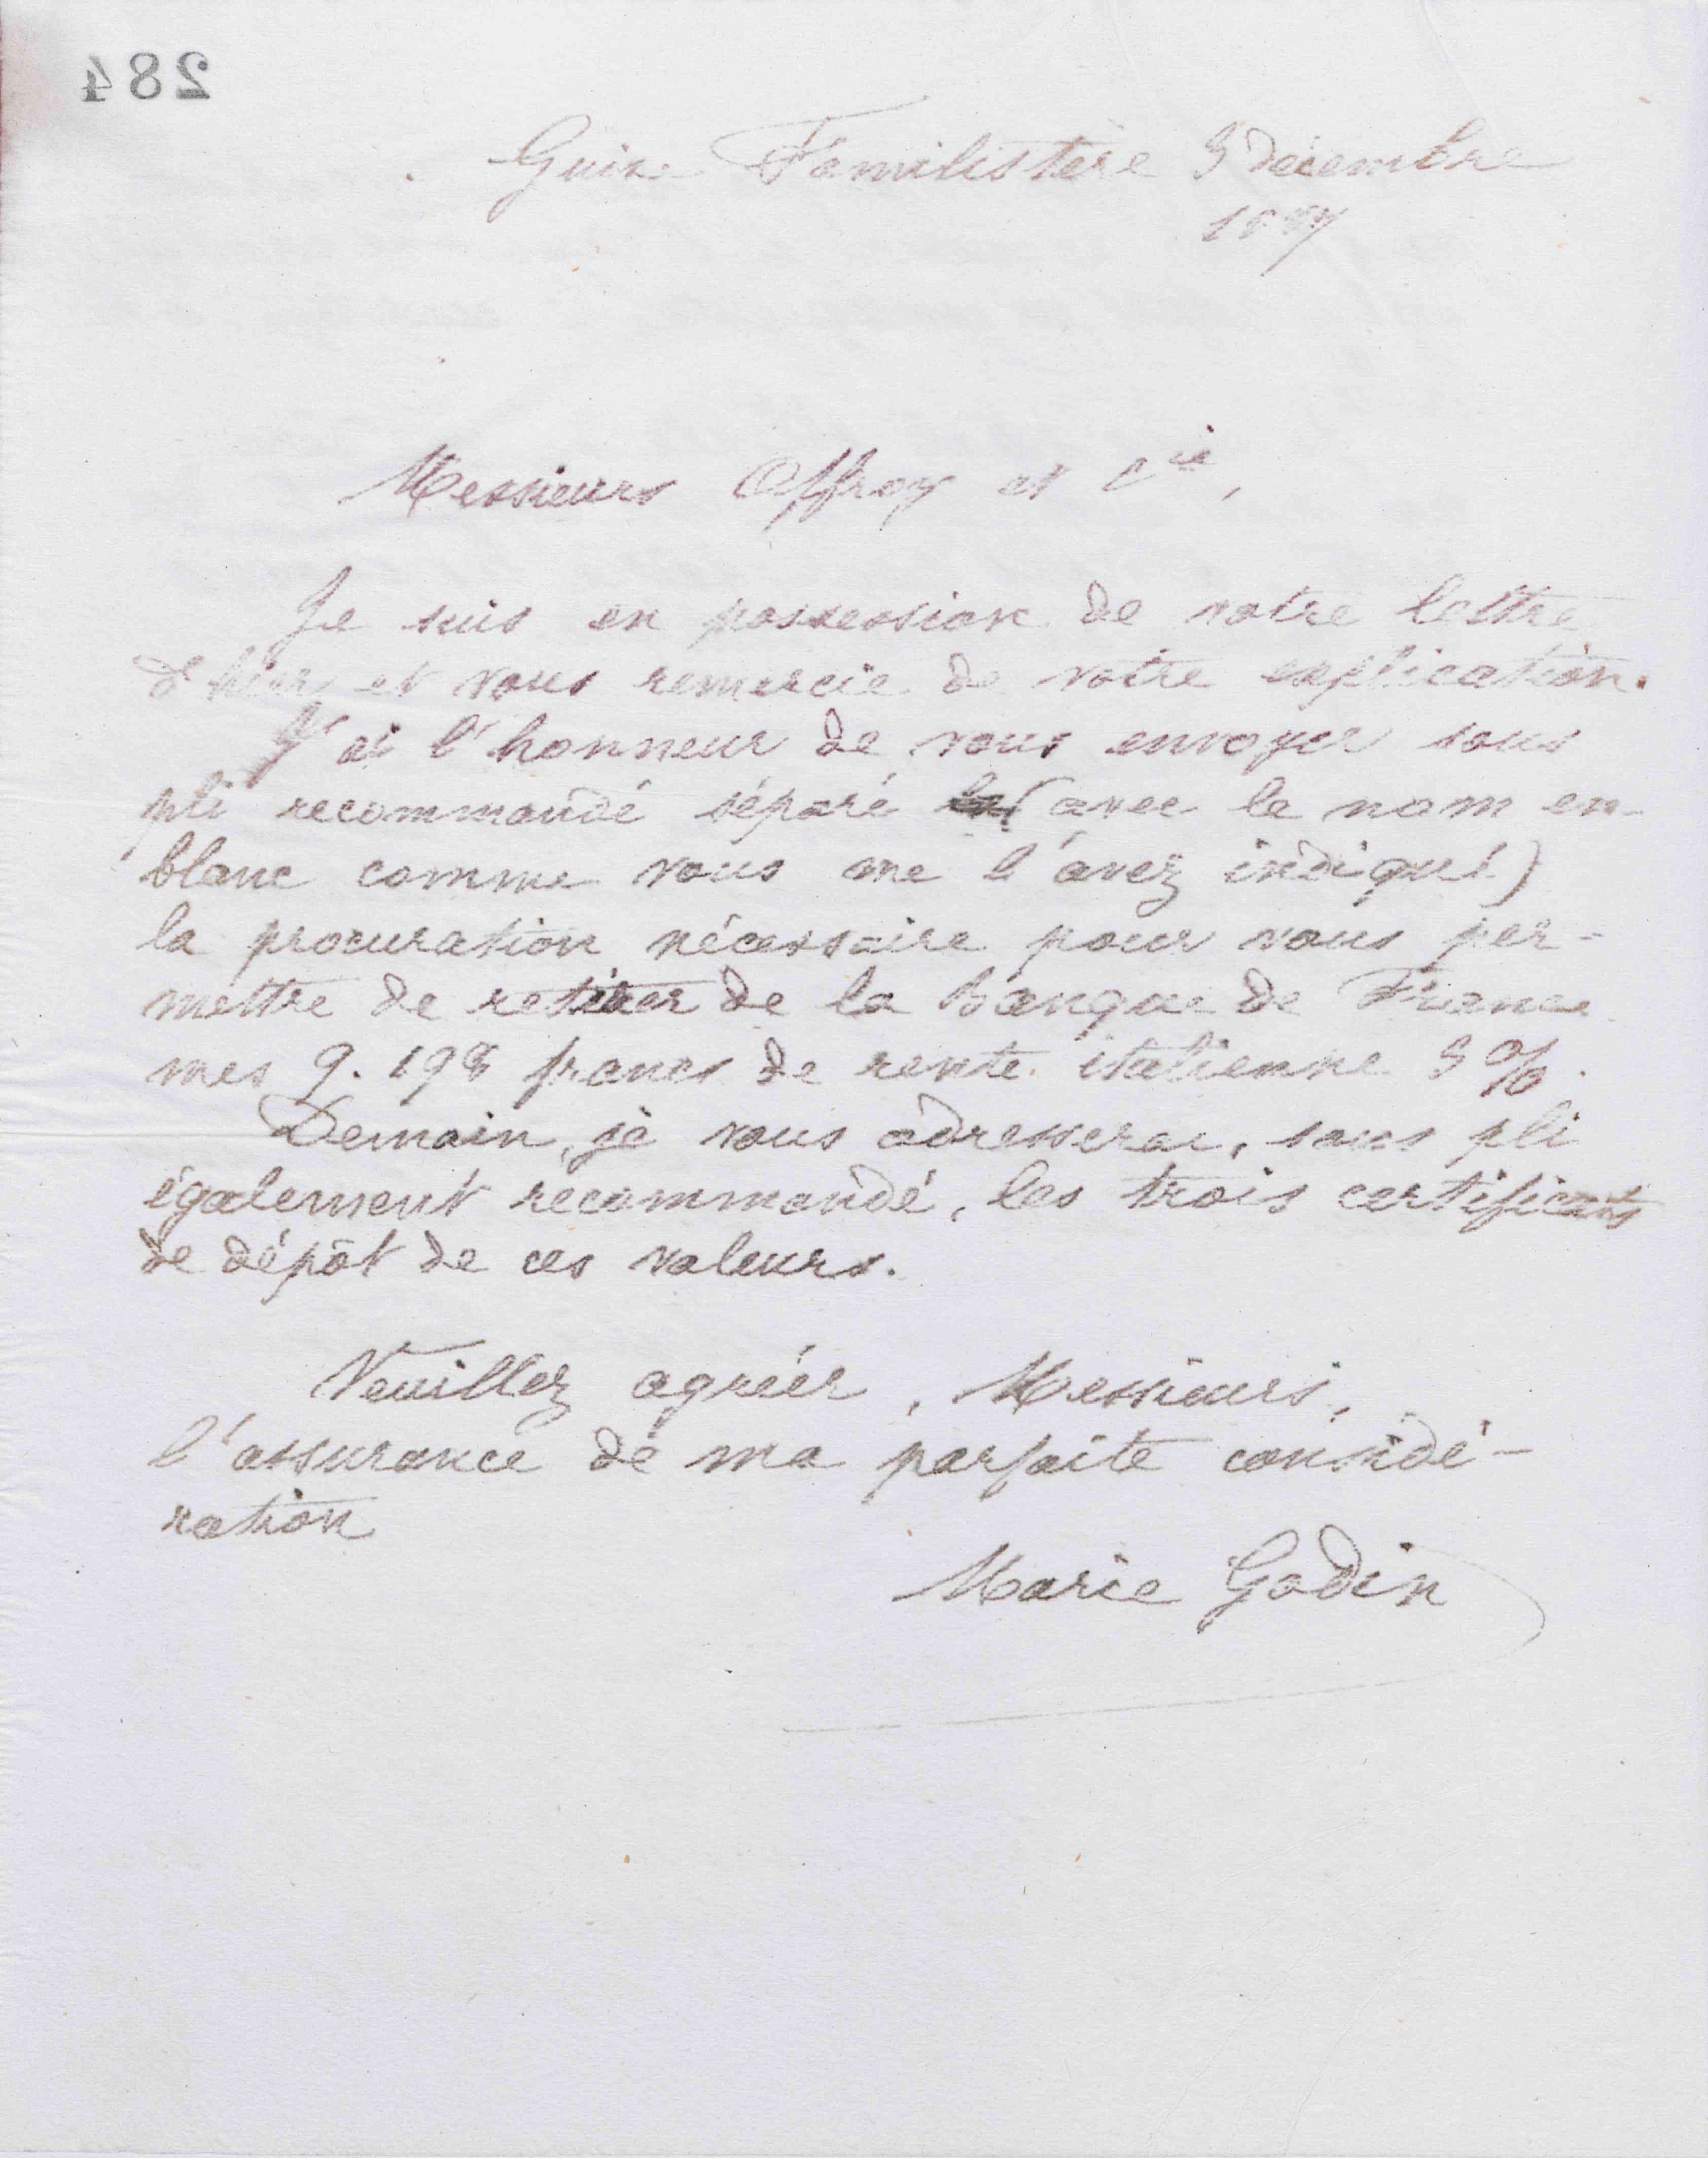 284
Guise Familistère 5 décembre
Messieurs Offroy et Cie,
Je suis en possession de votre lettre
d'hier et vous remercie de votre explication.
J'ai l'honneur de vous envoyer sous
pli recommandé séparé (avec le nom en
blanc comme vous me l'avez indiqué)
la procuration nécessaire pour vous per-
mettre de retirer de la Banque de France
mes 9.198 francs de rente italienne 5%.
Demain, je vous adresserai, sous pli
également recommandé, les trois certificats
de dépôt de ces valeurs.
Veuillez agréer, Messieurs,
l'assurance de ma parfaite considé-
ration
Marie Godin